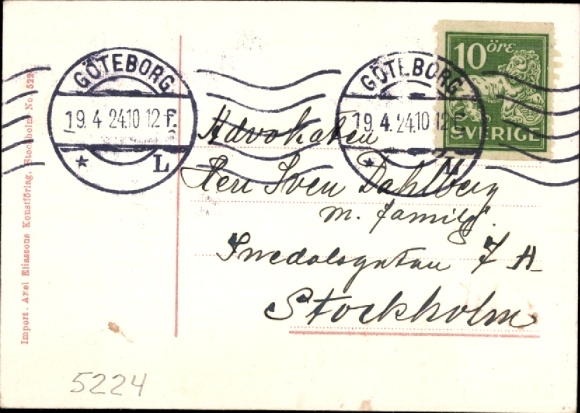 GÖTEBORG
19.4.24.10 12 F.
L
GÖTEBORG
19.4.24.10 12
10 ÖRE
SVERIGE
Advokaten
Herr Sven Dahlberg
m. familj.
7 A
Stockholm
Import. Axel Eliassons Konstförlag. Stockholm No
5224